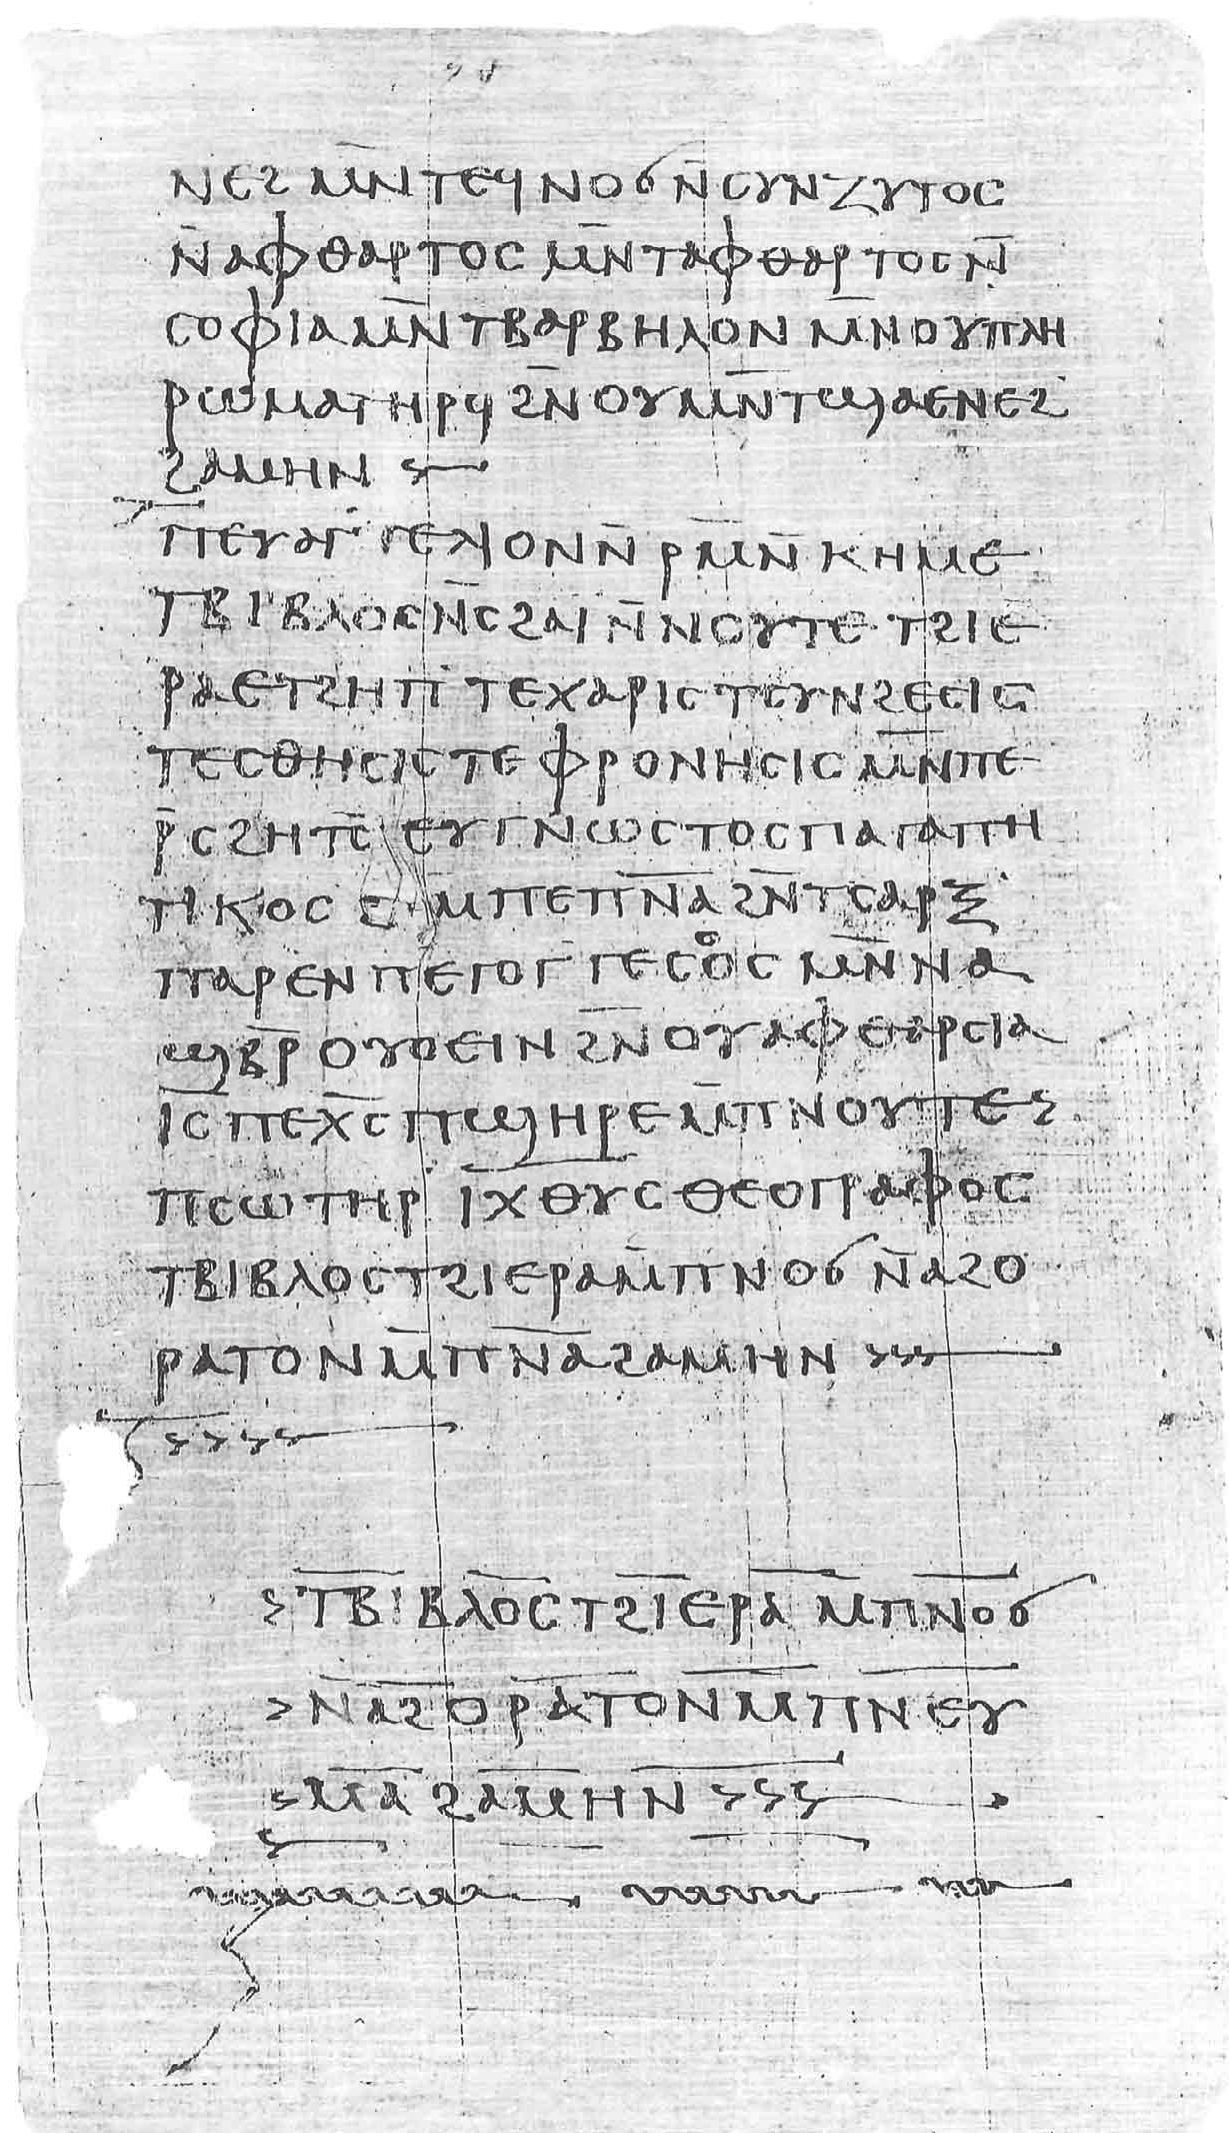 ⲛⲉϩ ⲙ̄ⲛ ⲧⲉϥⲛⲟϭ ⲛ̄ⲥⲩⲛⲍⲩⲧⲟⲥ
ⲛ̄ⲁⲫⲑⲁⲣⲧⲟⲥ ⲙ̄ⲛ ⲧⲁⲫⲑⲁⲣⲧⲟⲥ ⲛ̄
ⲥⲟⲫⲓⲁ ⲙ̄ⲛ ⲧⲃⲁⲣⲃⲏⲗⲟⲛ ⲙ̄ⲛ ⲟⲩⲡⲗⲏ
ⲣⲱⲙⲁ ⲧⲏⲣϥ ϩ̄ⲛ ⲟⲩⲙ̄ⲛⲧϣⲁⲉⲛⲉϩ
ϩⲁⲙⲏⲛ >—
ⲡⲉⲩⲁⲅ'ⲅⲉⲗⲓⲟⲛ ⲛ̄ⲣ̄ⲙ̄ⲛ̄ⲕⲏⲙⲉ
ⲧⲃⲓⲃⲗⲟⲥ ⲛ̄ⲥϩⲁⲓ ⲛ̄ⲛⲟⲩⲧⲉ ⲧϩⲓⲉ
ⲣⲁ ⲉⲧϩⲏⲡ' ⲧⲉⲭⲁⲣⲓⲥ ⲧⲥⲩⲛϩⲉⲥⲓⲥ
ⲧⲉⲥⲑⲏⲥⲓⲥ ⲧⲉⲫⲣⲟⲛⲏⲥⲓⲥ ⲙ̄ⲛ ⲡⲉ
ⲣ̄ⲥϩⲏⲧ̄ⲥ̄ ⲉⲩⲅⲛⲱⲥⲧⲟⲥ ⲡⲁⲅⲁⲡⲏ
ⲧⲓⲕⲟⲥ ϩ̄ⲙ ⲡⲉⲡ̄ⲛ̄ⲁ̄ ϩ̄ⲛ ⲧⲥⲁⲣⲝ'
ⲡⲁⲣⲉⲛ ⲡⲉ ⲅⲟⲅ'ⲅⲉⲥⲟⲥ ⲙ̄ⲛ ⲛⲁ
ϣⲃ̄ⲣ̄ⲟⲩⲟⲉⲓⲛ ϩ̄ⲛ ⲟⲩⲁⲫⲑⲁⲣⲥⲓⲁ
ⲓ̄ⲥ̄ ⲡⲉⲭ̄ⲥ̄ ⲡϣⲏⲣⲉ ⲙ̄ⲡⲛⲟⲩⲧⲉ >
ⲡⲥⲱⲧⲏⲣ' ⲓ̄ⲭ̄ⲑ̄ⲩ̄ⲥ̄ ⲑⲉⲟⲅⲣⲁⲫⲟⲥ
ⲧⲃⲓⲃⲗⲟⲥ ⲧϩⲓⲉⲣⲁ ⲙ̄ⲡⲛⲟϭ ⲛ̄ⲁϩⲟ
ⲣⲁⲧⲟⲛ ⲙ̄ⲡ̄ⲛ̄ⲁ̄ ϩⲁⲙⲏⲛ >>>—
>>>>—
>ⲧⲃⲓⲃⲗⲟⲥ ⲧϩⲓⲉⲣⲁ ⲙⲡⲛⲟϭ
>ⲛⲁϩⲟⲣⲁⲧⲟⲛ ⲙⲡⲛⲉⲩ
>ⲙⲁ ϩⲁⲙⲏⲛ >>>—